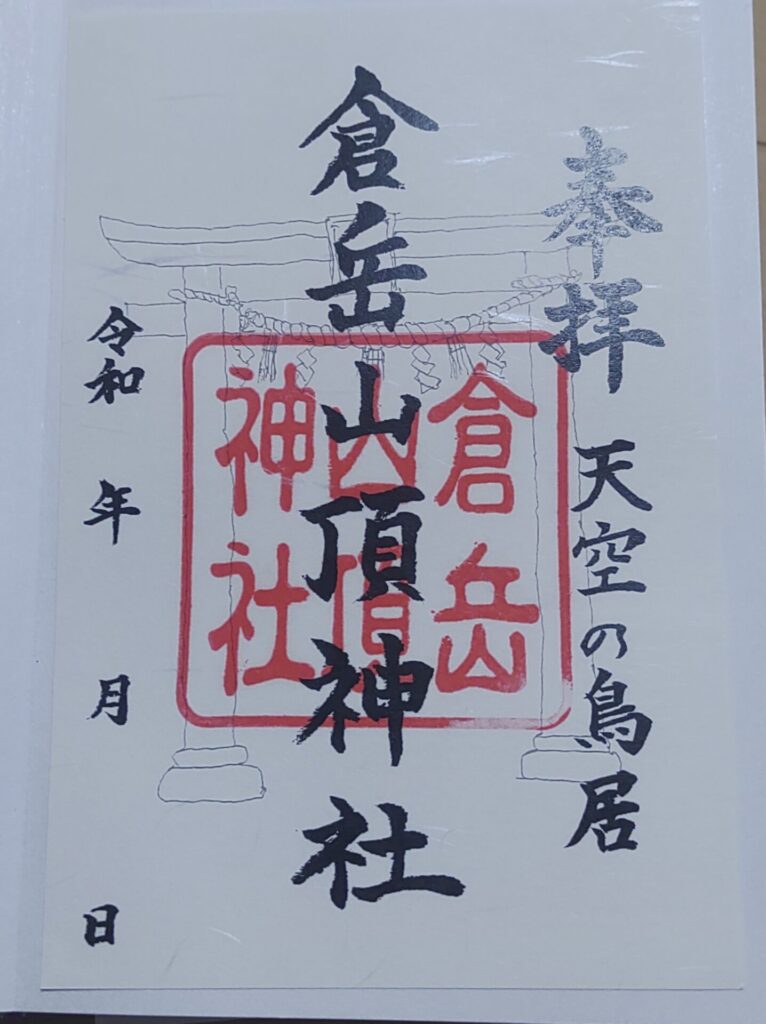 奉拝
天空の鳥居
倉岳山頂神社
倉岳
山頂
神社
令和 年 月 日